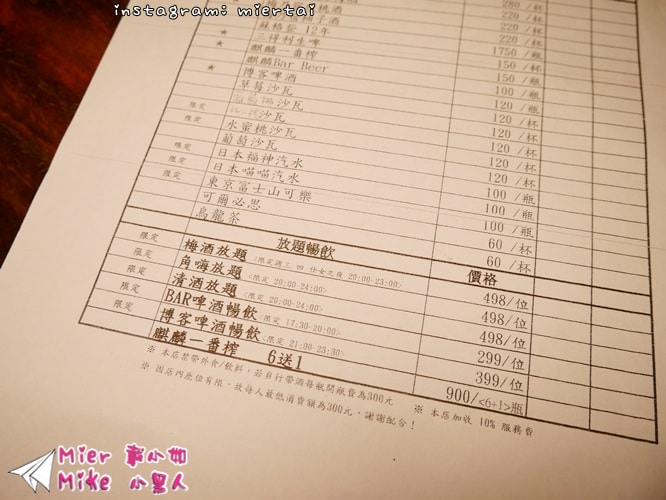 instagram: miertai
桃酒 280 /杯
柚子酒 220 /杯
蘇格登 12年 220 /杯
★ 三得利生啤 1750 /瓶
★ 麒麟一番榨 150 /杯
麒麟Bar Beer 150 /瓶
★ 博客啤酒 100 /瓶
草莓沙瓦 120 /杯
沙瓦 120 /杯
限定 沙瓦 120 /杯
限定 水蜜桃沙瓦 120 /杯
葡萄沙瓦 120 /杯
限定 日本福神汽水 100 /瓶
限定 日本喵喵汽水 100 /瓶
限定 東京富士山可樂 100 /瓶
可爾必思 60 /杯
烏龍茶 60 /杯
放題暢飲 價格
限定 梅酒放題 <限定週三 四 仕女之夜 20:00-23:00> 498/位
限定 角嗨放題 <限定 20:00-24:00> 498/位
限定 清酒放題 <限定 20:00-24:00> 498/位
限定 BAR啤酒暢飲 <限定 17:30-20:00> 299/位
限定 博客啤酒暢飲 <限定 21:00-23:30> 399/位
麒麟一番榨 6送1 900/<6+1>瓶
※ 本店禁帶外食/飲料,若自行帶酒每瓶開瓶費為300元 ※ 本店加收 10% 服務費
※ 因店內座位有限,故每人最低消費額為300元,謝謝配合!
Mier 寞小如
Mike 小黑人